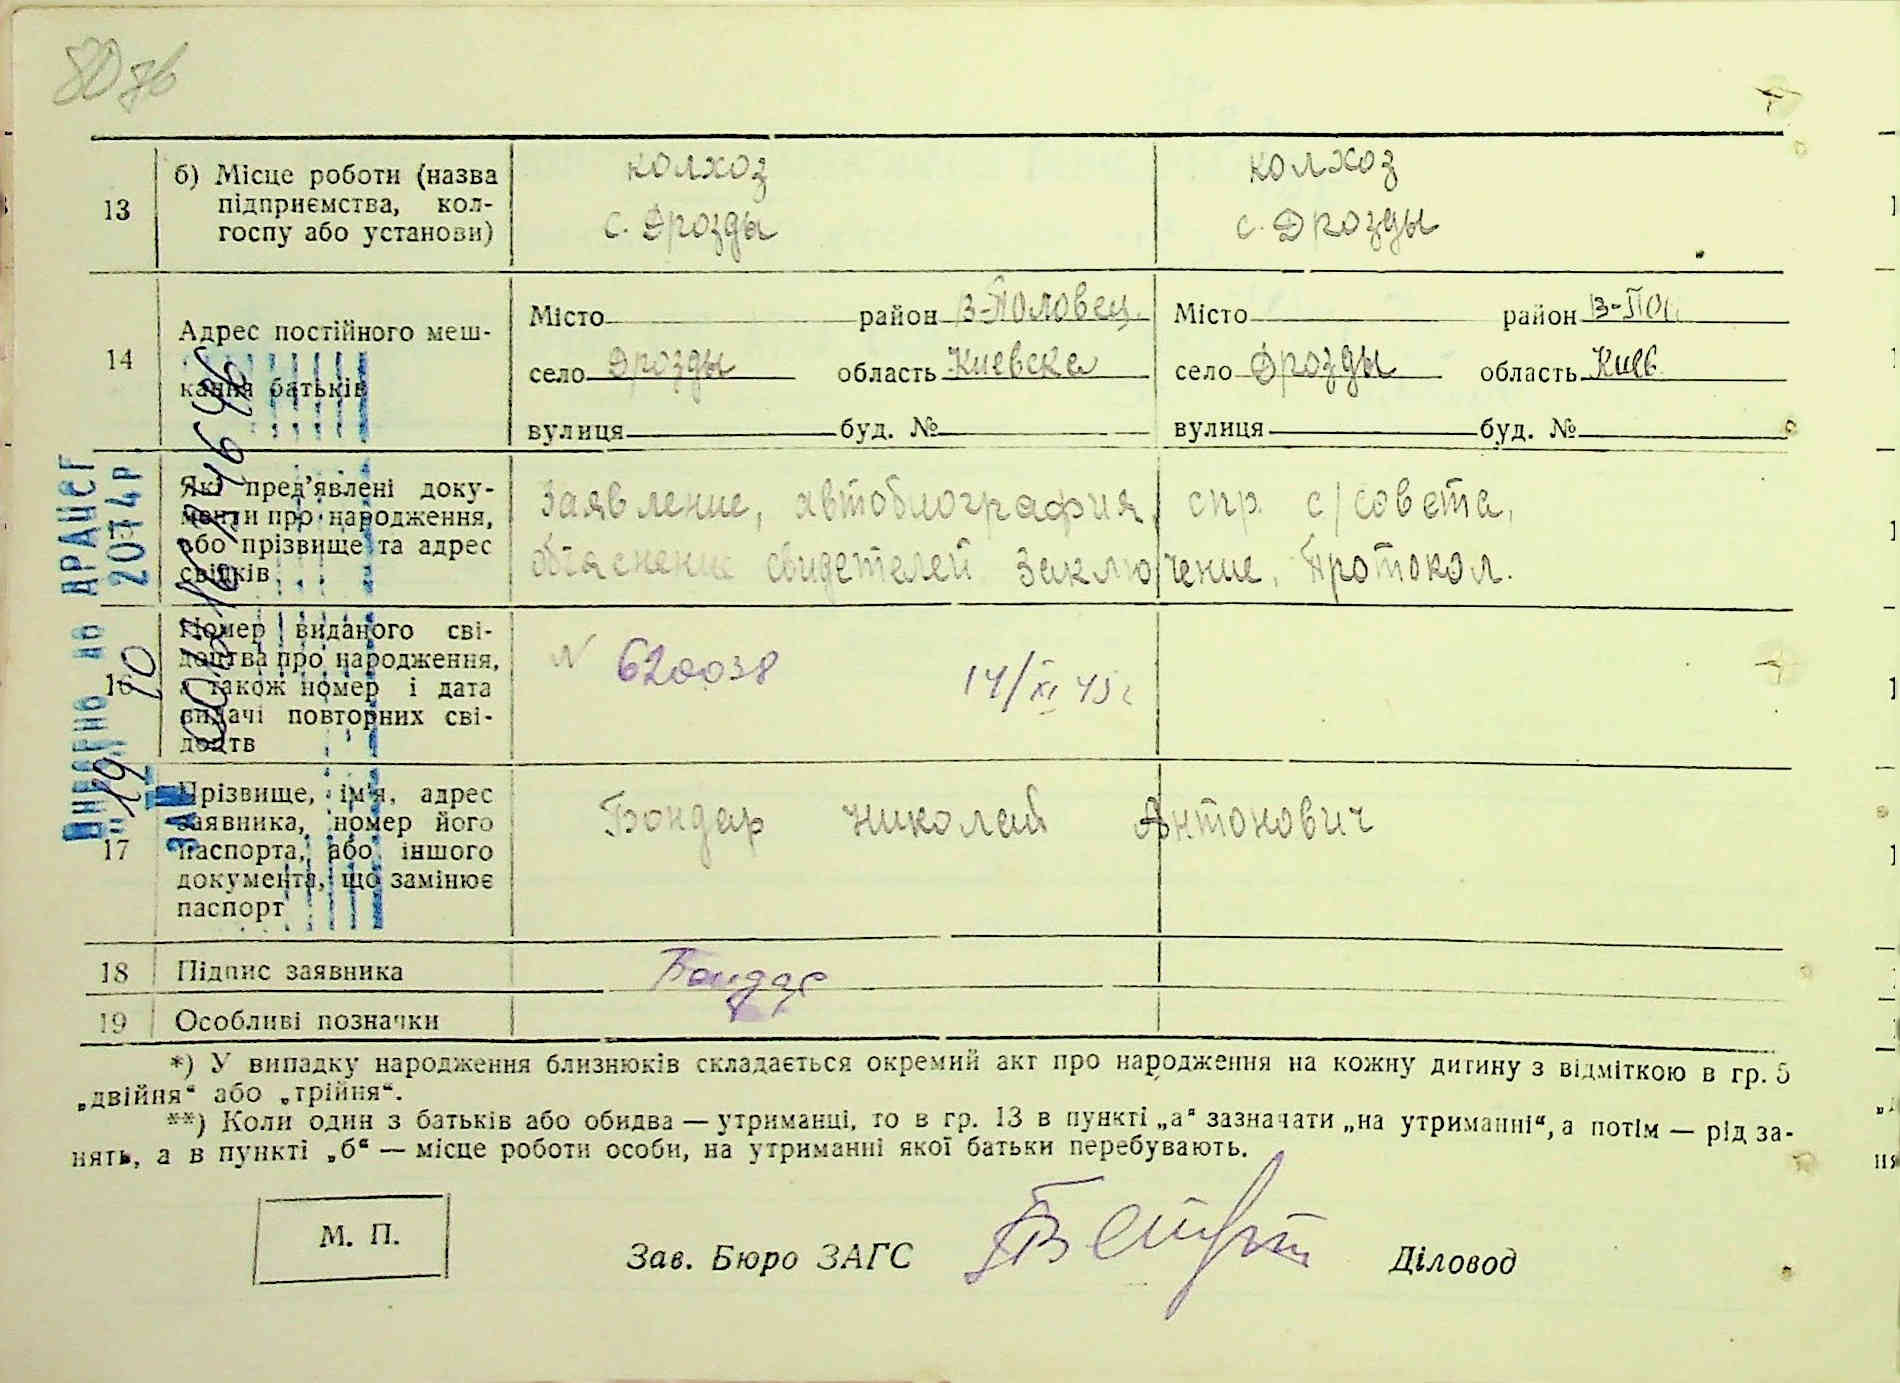 80 зв
13
б) Місце роботи (назва
підприємства, кол-
госпу або установи)
колхоз
с. Дрозды
колхоз
с. Дрозды
14
Адрес постійного меш-
кання батьків
Місто район В-Половец.
село Дрозды область Киевска
вулиця буд. №
Місто район В-Пол.
село Дрозды область Киев.
вулиця буд. №
Які пред’явлені доку-
менти про народження,
або прізвище та адрес
свідків
Заявление, автобиография, спр. с/совета,
объяснение свидетелей Заключение, Протокол.
16
Номер виданого сві-
доцтва про народження,
а також номер і дата
видачі повторних сві-
доцтв
N 620038 14/XI 45 г
17
Прізвище, ім’я, адрес
заявника, номер його
паспорта, або іншого
документа, що замінює
паспорт
Бондар Николай Антонович
18 Підпис заявника
Бондар
19 Особливі позначки
*) У випадку народження близнюків складається окремий акт про народження на кожну дитину з відміткою в гр. 5
„двійня“ або „трійня“.
**) Коли один з батьків або обидва — утриманці, то в гр. 13 в пункті „а“ зазначати „на утриманні“, а потім — рід за-
нять, а в пункті „б“ — місце роботи особи, на утриманні якої батьки перебувають.
М. П.
Зав. Бюро ЗАГС
Діловод
Внесено до ДРАЦСГ
"19" 10 2014р